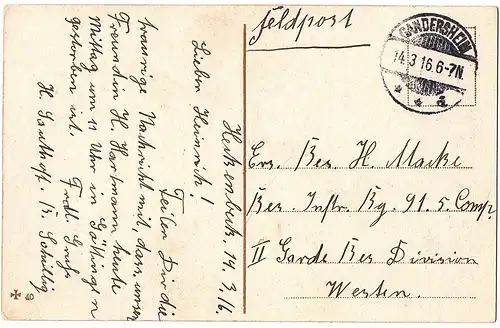 Feldpost
GANDERSHEIM
14.3.16.6-7N.
* * d
Ers. Res. H. Macke
Res. Inftr. Rg. 91. 5. Comp
II Garde Res Division
Westen.
14. 3. 16.
Lieber Heinrich!
Teilen Dir die
traurige Nachricht mit, dass unser
Freundin H. Hartmann heute
Mittag um 11 Uhr in Göttingen
gestorben ist. Frdl. Gruß
H. Sauthof. R. Schillig
49